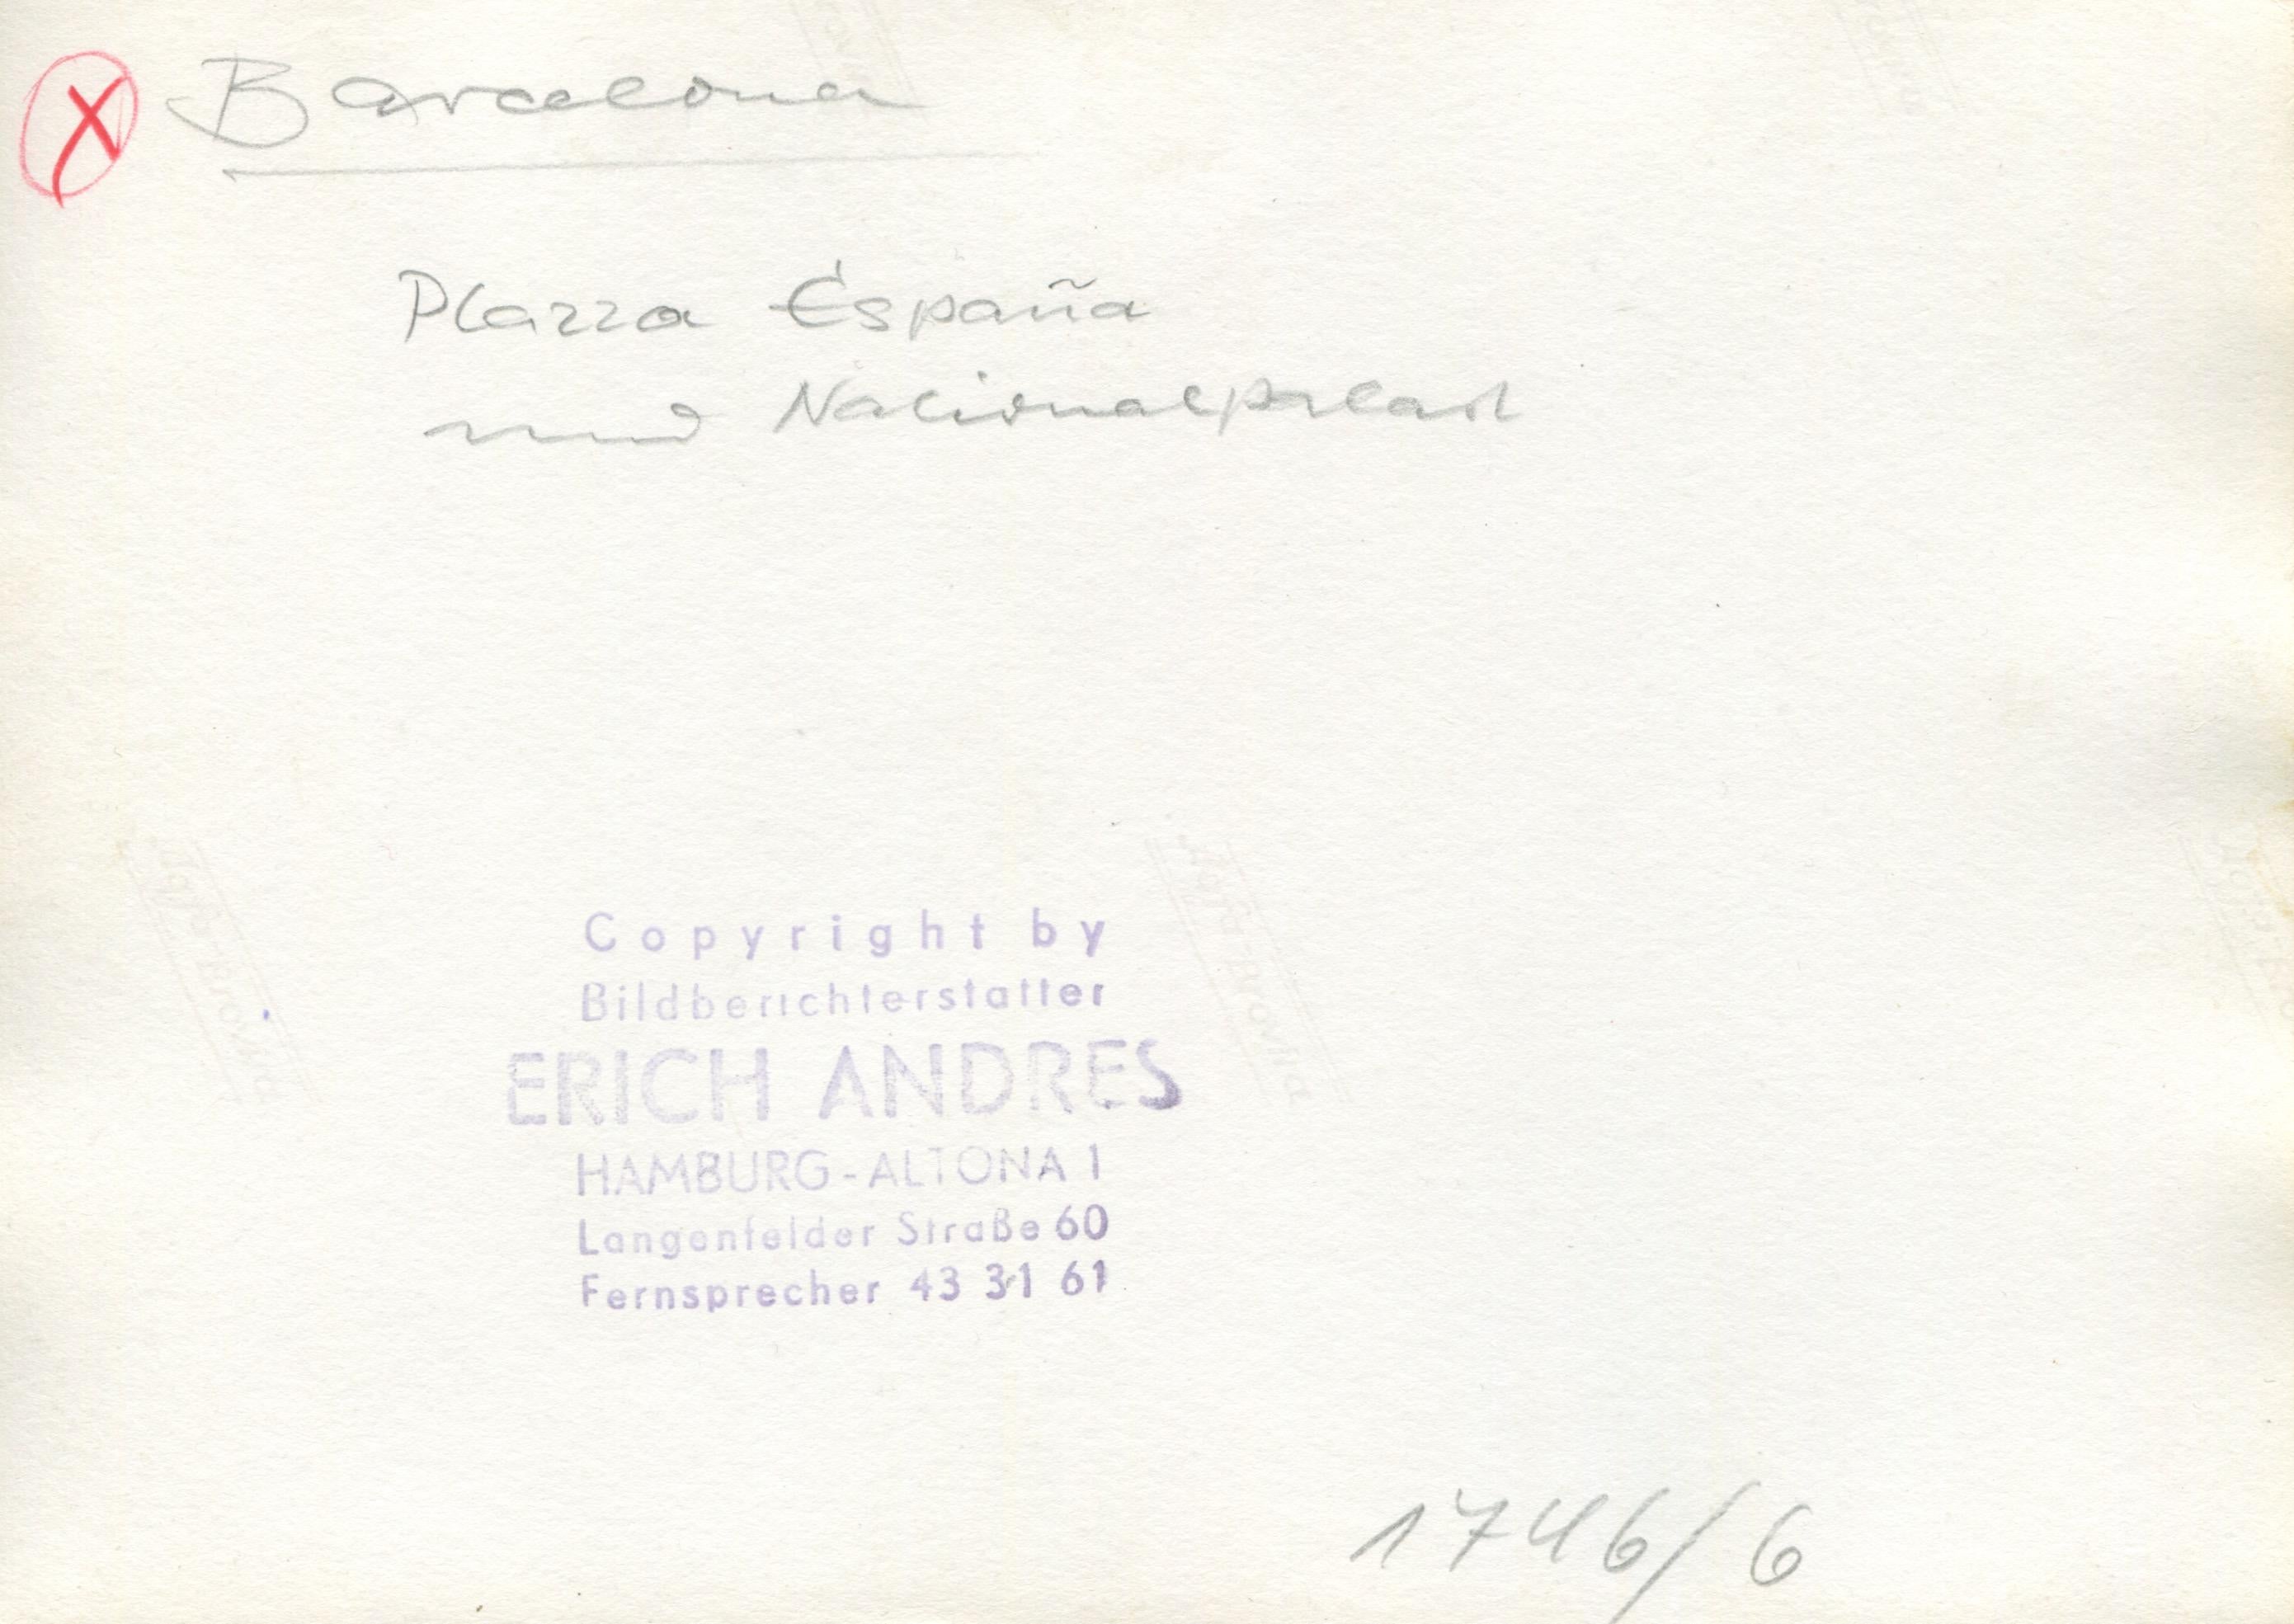 X Barcelona
Plazza España
und Nacionalpalast
Copyright by
Bildberichterstatter
ERICH ANDRES
HAMBURG-ALTONA 1
Langenfelder Straße 60
Fernsprecher 43 31 61
1746/6